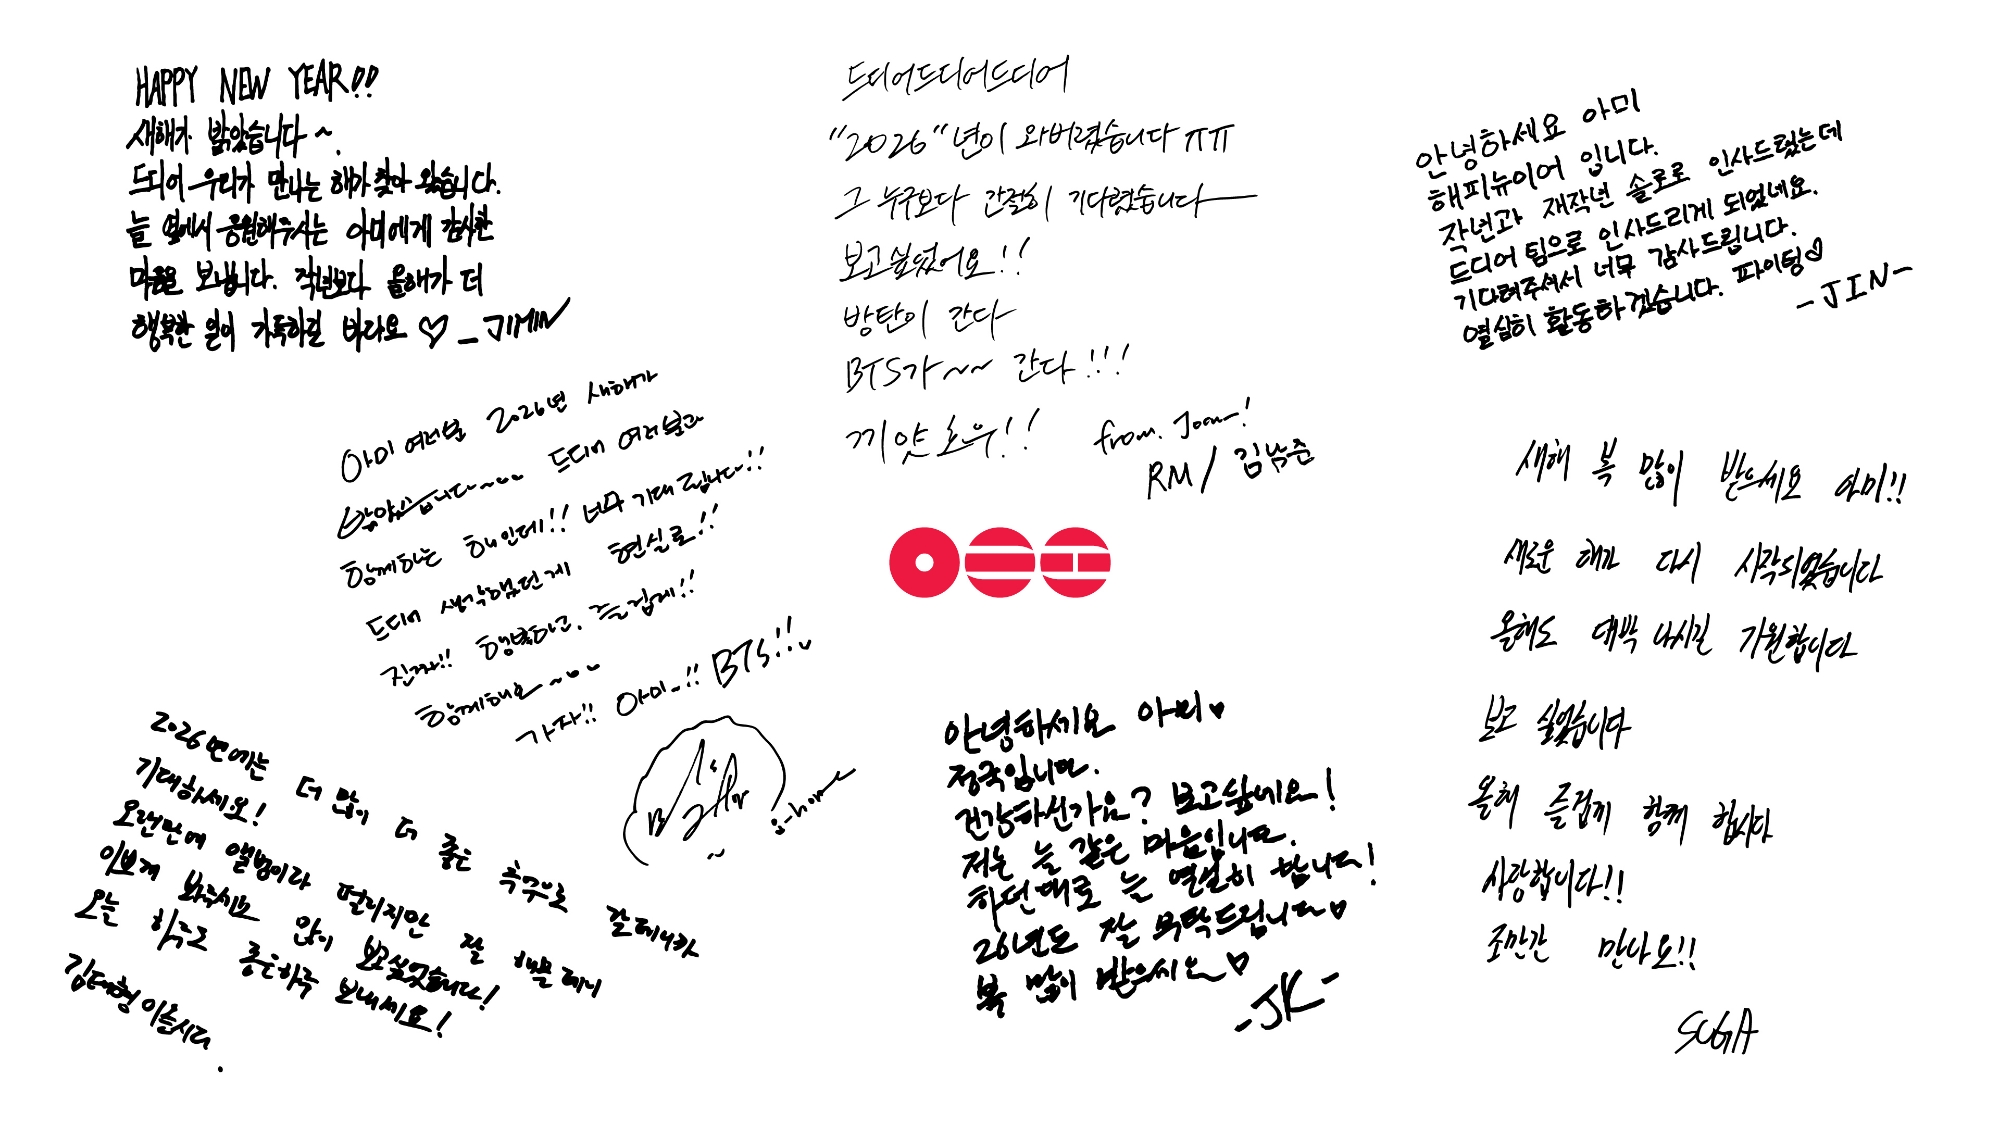 HAPPY NEW YEAR!!
새해가 밝았습니다~.
드디어 우리가 만나는 해가 찾아 왔습니다.
늘 옆에서 응원해주시는 아미에게 감사한
마음을 보냅니다. 작년보다 올해가 더
행복한 일이 가득하길 바라요 ♡ _JIMIN
드디어드디어드디어
"2026"년이 와버렸습니다 ㅠㅠ
그 누구보다 간절히 기다렸습니다
보고싶었어요!!
방탄이 간다
BTS가~~ 간다!!!
끼얏호우!!
from. Joon!
RM / 김남준
안녕하세요 아미
해피뉴이어 입니다.
작년과 재작년 솔로로 인사드렸는데
드디어 팀으로 인사드리게 되었네요.
기다려주셔서 너무 감사드립니다.
열심히 활동하겠습니다. 파이팅♡
-JIN-
아미 여러분 2026년 새해가
밝았습니다~~ 드디어 여러분과
함께하는 해인데!! 너무 기대됩니다!!
드디어 생각했던게 현실로!!
진짜!! 행복하고, 즐겁게!!
함께해요~
가자!! 아미!! BTS!!
j-hope
새해 복 많이 받으세요 아미!!
새로운 해가 다시 시작되었습니다
올해도 대박 나시길 기원합니다
보고 싶었습니다
올해 즐겁게 함께 합시다
사랑합니다!!
조만간 만나요!!
SUGA
2026년에는 더 많이 더 좋은 추억으로 갈테니까
기대하세요!
오랜만에 앨범이라 떨리지만 잘 해볼테니
이쁘게 봐주시고 많이 보고싶었습니다!
오늘 하루도 좋은하루 보내세요!
김태형이올시다.
안녕하세요 아미♥
정국입니다.
건강하신가요? 보고싶네요!
저는 늘 같은 마음입니다.
하던대로 늘 열심히 합니다!
26년도 잘 부탁드립니다♡
복 많이 받으시오♡
-JK-